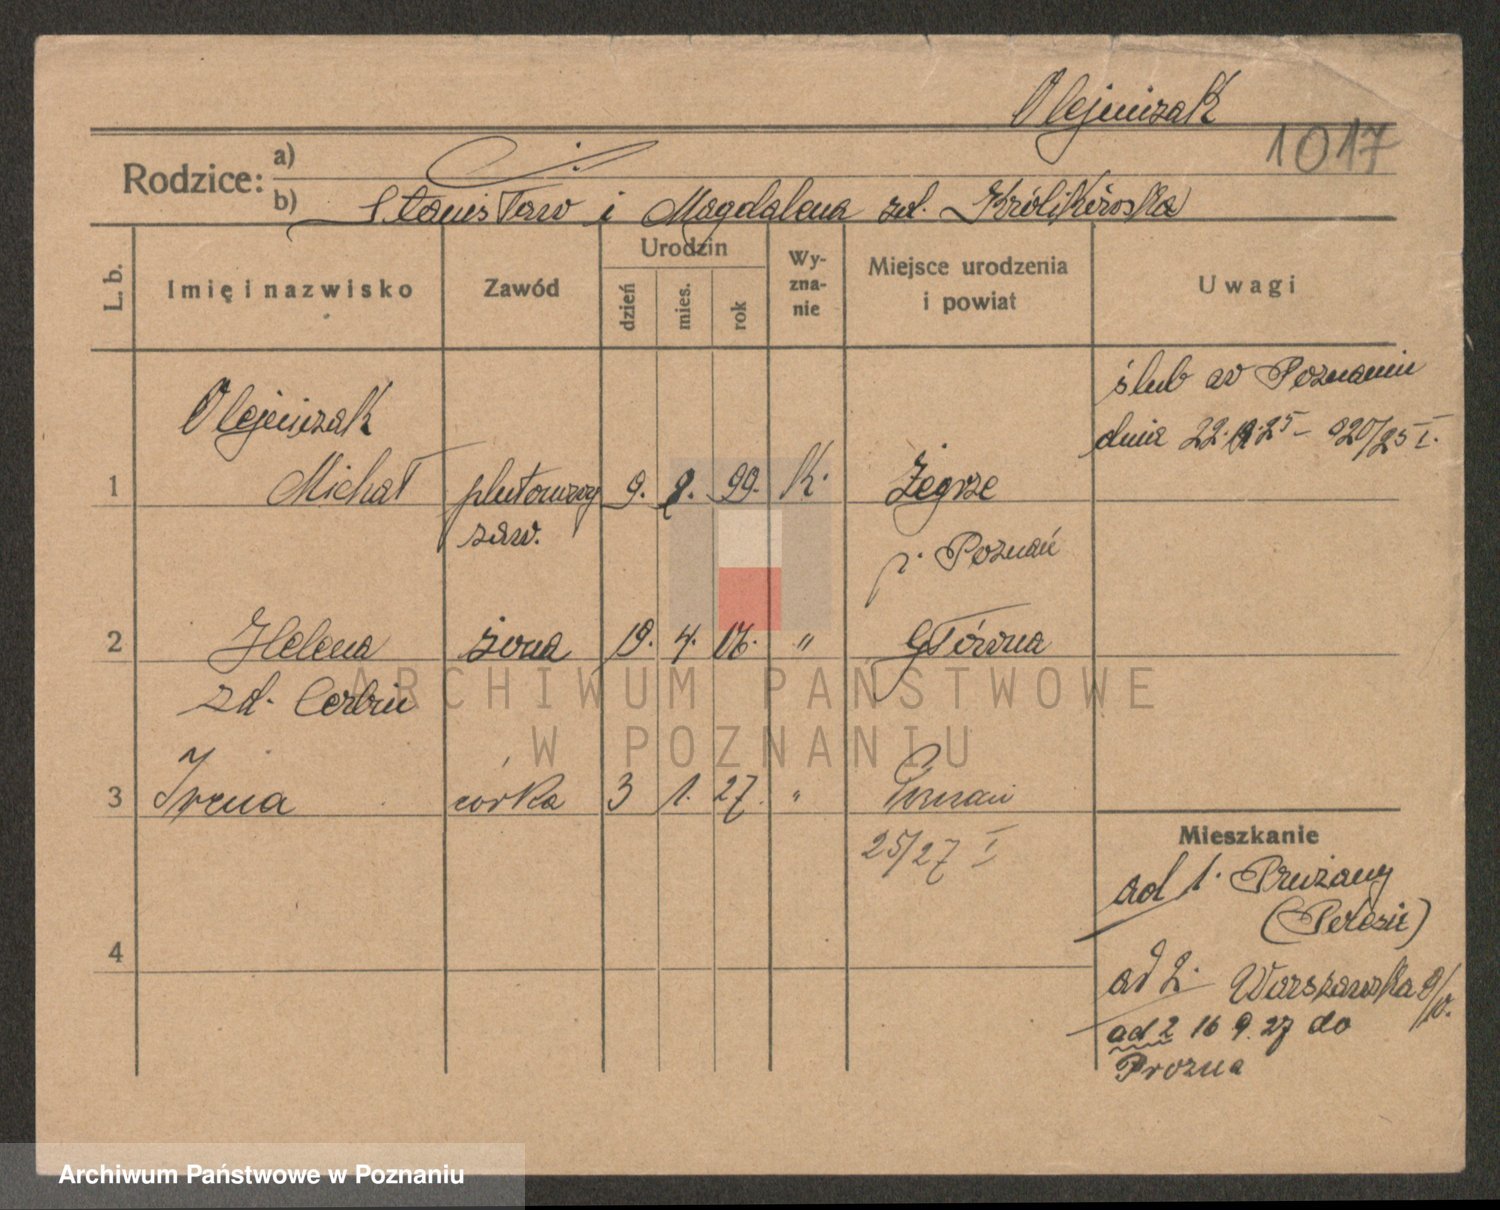 Olejniczak
1017
Rodzice: a)
b) Stanisław i Magdalena zd. Królikowska
L. b. Imię i nazwisko Zawód Urodzin dzień mies. rok Wy-zna-nie Miejsce urodzenia i powiat Uwagi
ślub w Poznaniu
Olejniczak
dnia 22. 25 - 920/25 I.
1 Michał plutonowy 9. 8. 99. K. Żegrze
zaw. p. Poznań
2 Helena żona 19. 4. " Główna
zd.
ARCHIWUM PAŃSTWOWE
W POZNANIU
3 Irena córka 3 1. 27. " Poznań
25/27 I
Mieszkanie
ad 1. Prużany
4
ad 2. Warszawska
ad 2 16 9. 27 do
Prozna
Archiwum Państwowe w Poznaniu